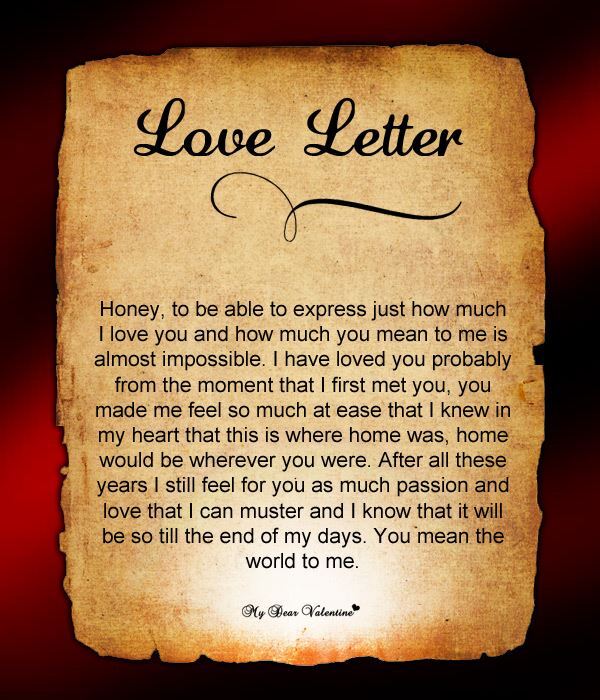 Love Letter
Honey, to be able to express just how much
I love you and how much you mean to me is
almost impossible. I have loved you probably
from the moment that I first met you, you
made me feel so much at ease that I knew in
my heart that this is where home was, home
would be wherever you were. After all these
years I still feel for you as much passion and
love that I can muster and I know that it will
be so till the end of my days. You mean the
world to me.
My Dear Valentine